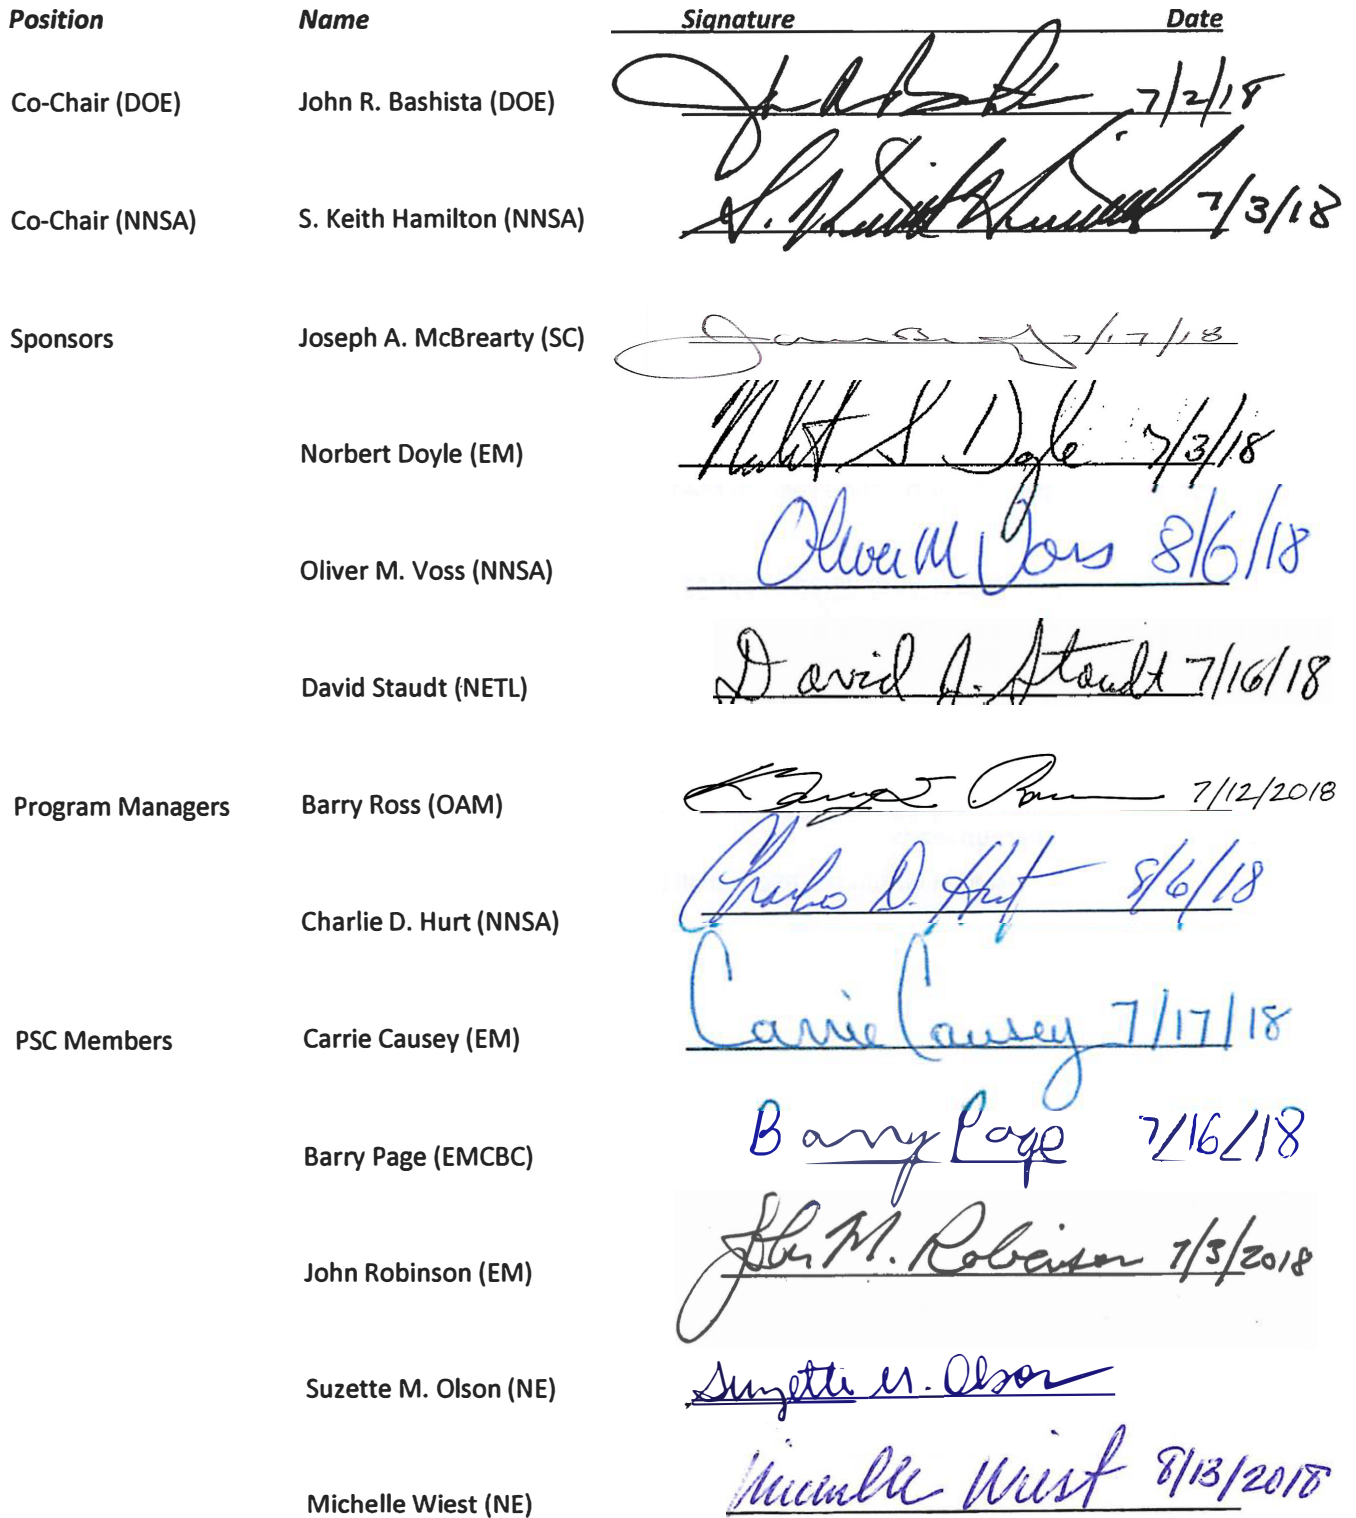 Position Name Signature Date
Co-Chair (DOE) John R. Bashista (DOE) 7/2/18
Co-Chair (NNSA) S. Keith Hamilton (NNSA) S. Keith Hamilton 7/3/18
Sponsors Joseph A. McBrearty (SC) 7/17/18
Norbert Doyle (EM) Norbert S Doyle 7/3/18
Oliver M. Voss (NNSA) Oliver M Voss 8/6/18
David Staudt (NETL) David J. Staudt 7/16/18
Program Managers Barry Ross (OAM) 7/12/2018
Charlie D. Hurt (NNSA) Charlie D. Hurt 8/6/18
PSC Members Carrie Causey (EM) Carrie Causey 7/17/18
Barry Page (EMCBC) Barry Page 7/16/18
John Robinson (EM) John M. Robinson 7/3/2018
Suzette M. Olson (NE) Suzette M. Olson
Michelle Wiest (NE) Michelle Wiest 8/13/2018